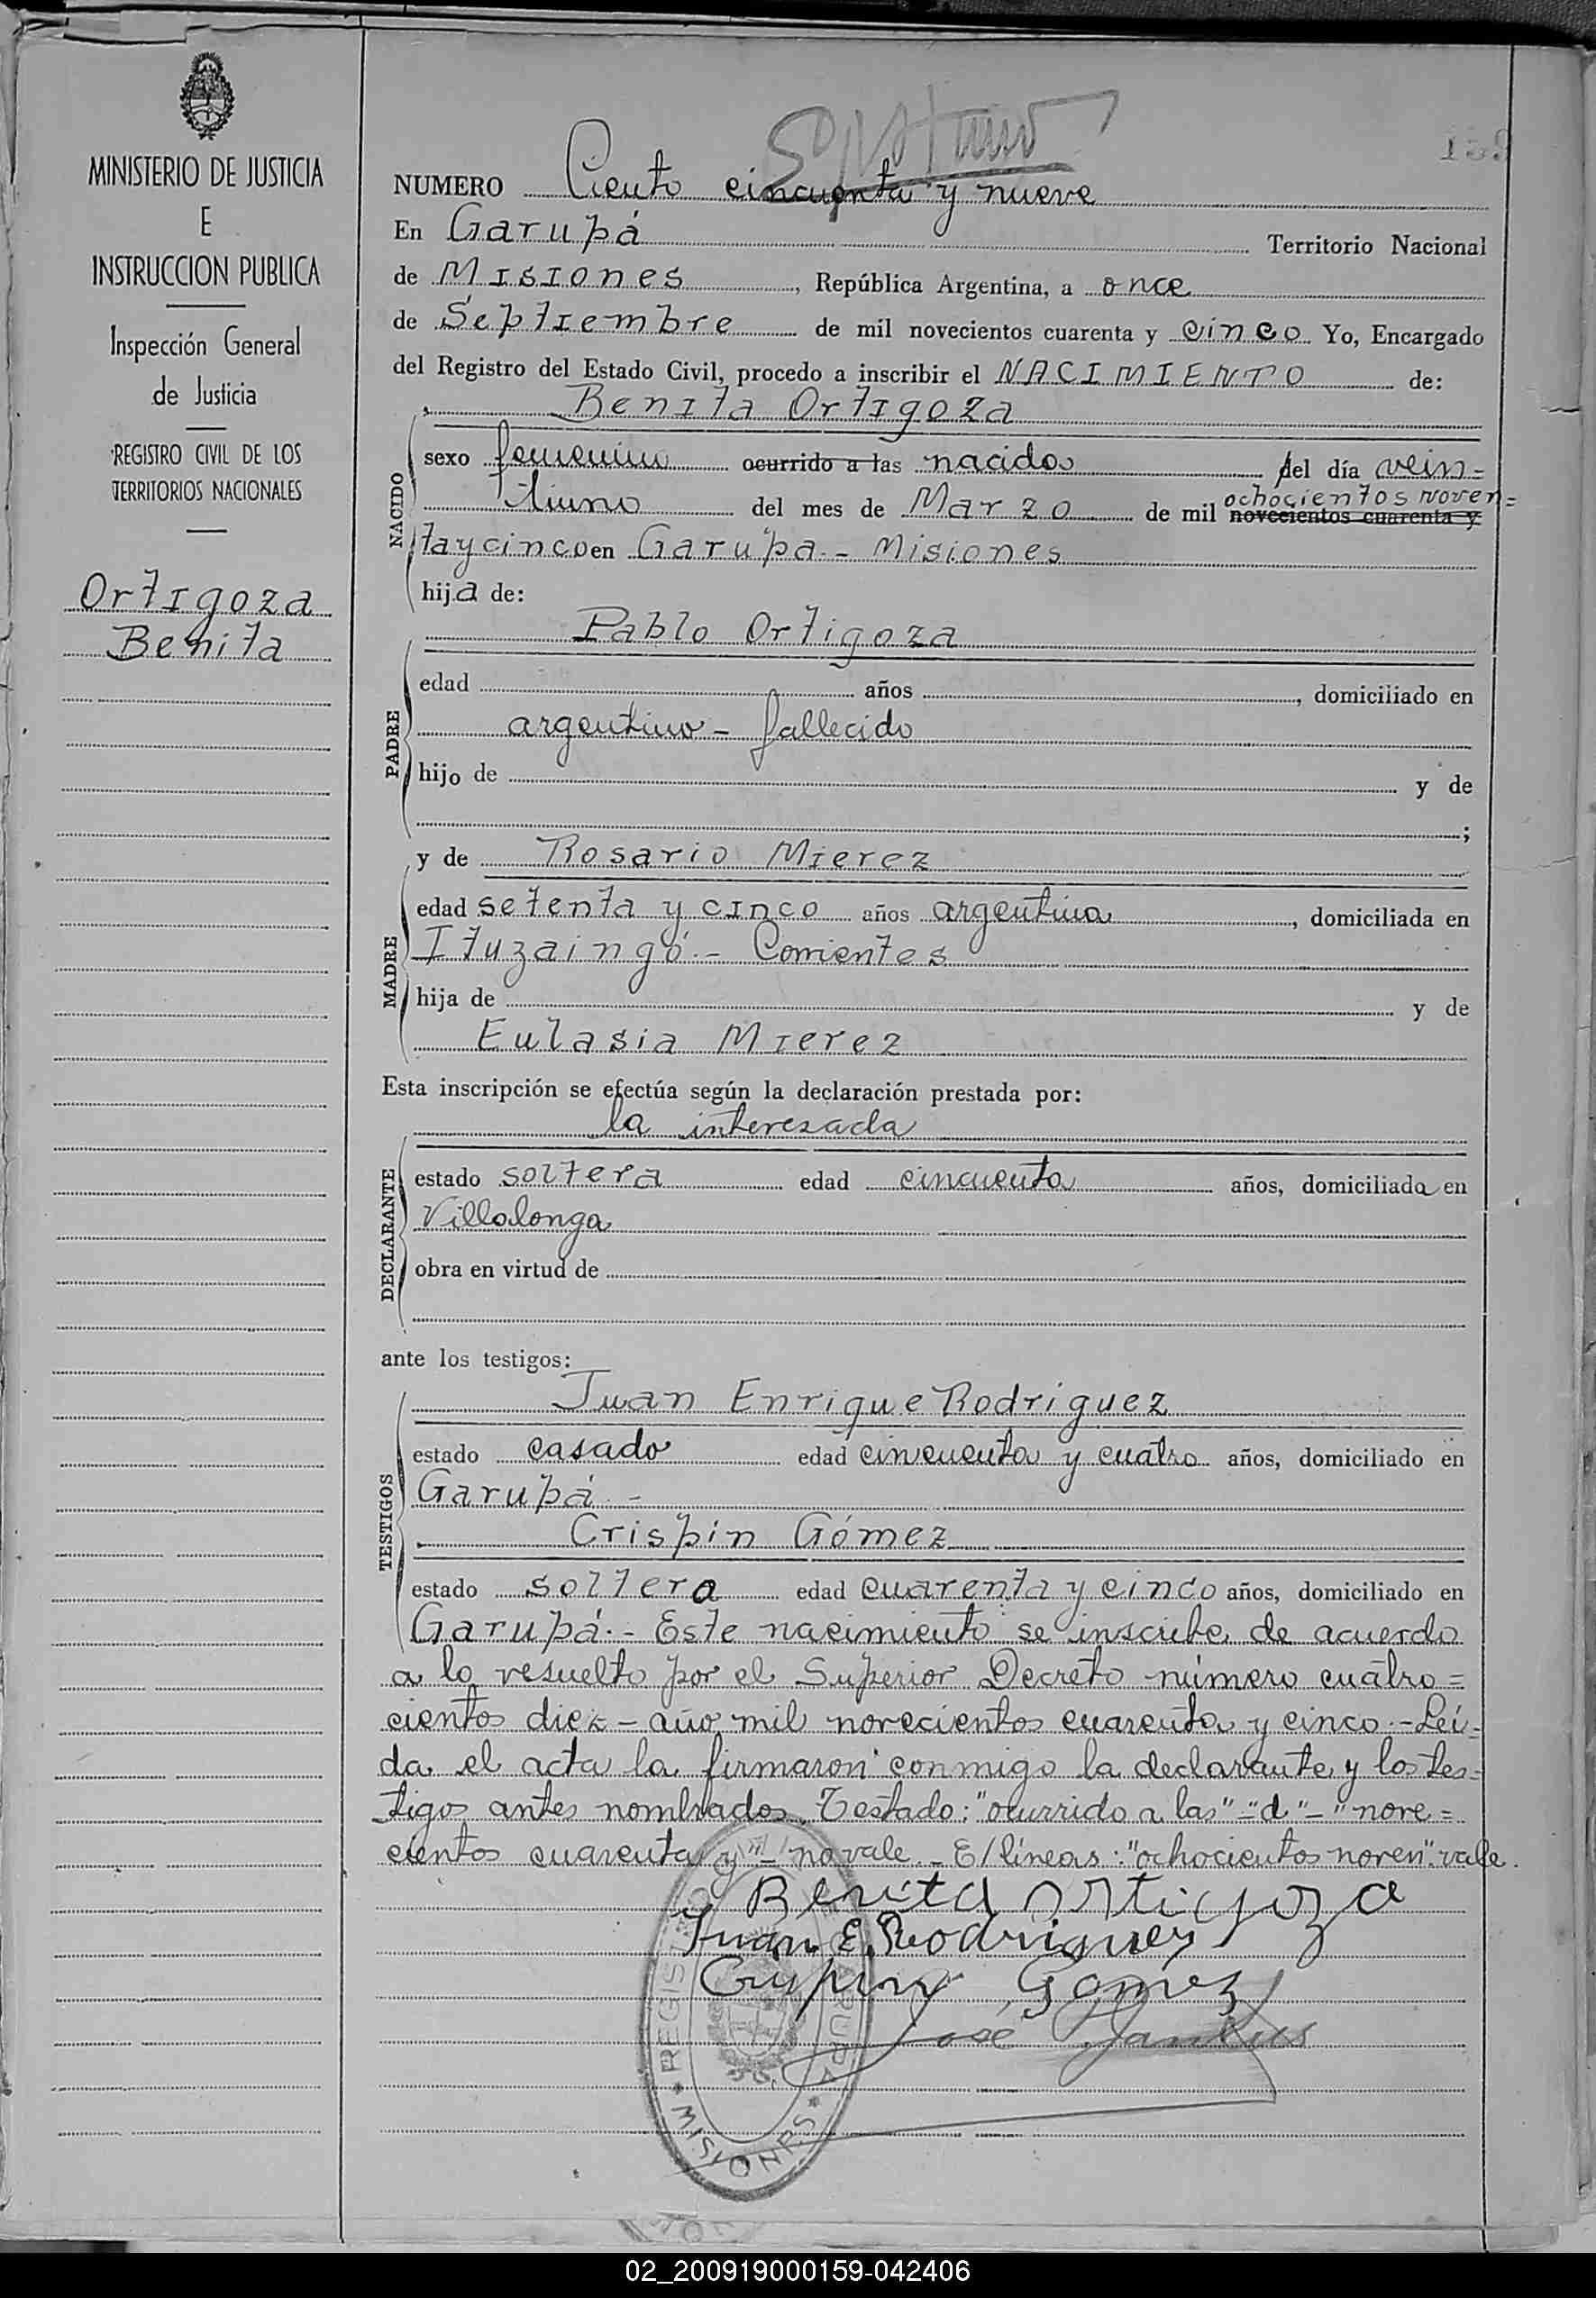 MINISTERIO DE JUSTICIA
E
INSTRUCCION PUBLICA
Inspección General
de Justicia
REGISTRO CIVIL DE LOS
TERRITORIOS NACIONALES
Ortigoza
Benita
NUMERO Ciento cincuenta y nueve
En Garupá Territorio Nacional
de Misiones, República Argentina, a once
de Septiembre de mil novecientos cuarenta y cinco Yo, Encargado
del Registro del Estado Civil, procedo a inscribir el NACIMIENTO de:
Benita Ortigoza
NACIDO
sexo femenino ocurrido a las nacida del día vein=
tiuno del mes de Marzo de mil novecientos cuarenta y
ochocientos noven=
taycinco en Garupa.- Misiones
hija de:
Pablo Ortigoza
PADRE
edad años, domiciliado en
argentino - fallecido
hijo de y de
;
y de Rosario Mierez
MADRE
edad setenta y cinco años argentina, domiciliada en
Ituzaingó.- Corrientes
hija de y de
Eulasia Mierez
Esta inscripción se efectúa según la declaración prestada por:
la interesada
DECLARANTE
estado soltera edad cincuenta años, domiciliada en
Villalonga
obra en virtud de
ante los testigos:
Juan Enrique Rodriguez
TESTIGOS
estado casado edad cincuenta y cuatro años, domiciliado en
Garupá.-
Crispin Gómez
estado soltero edad cuarenta y cinco años, domiciliado en
Garupá.- Este nacimiento se inscribe de acuerdo
a lo resuelto por el Superior Decreto número cuatro=
cientos diez - año mil novecientos cuarenta y cinco.- Leí=
da el acta la firmaron conmigo la declarante y los tes=
tigos antes nombrados. Testado: "ocurrido a las"-"d"-"nove=
cientos cuarenta y"- no vale.- E/líneas: "ochocientos noven". vale.
Benita Ortigoza
Juan E. Rodriguez
Crispin Gomez
José
REGIS
MISIONES
02_200919000159-042406